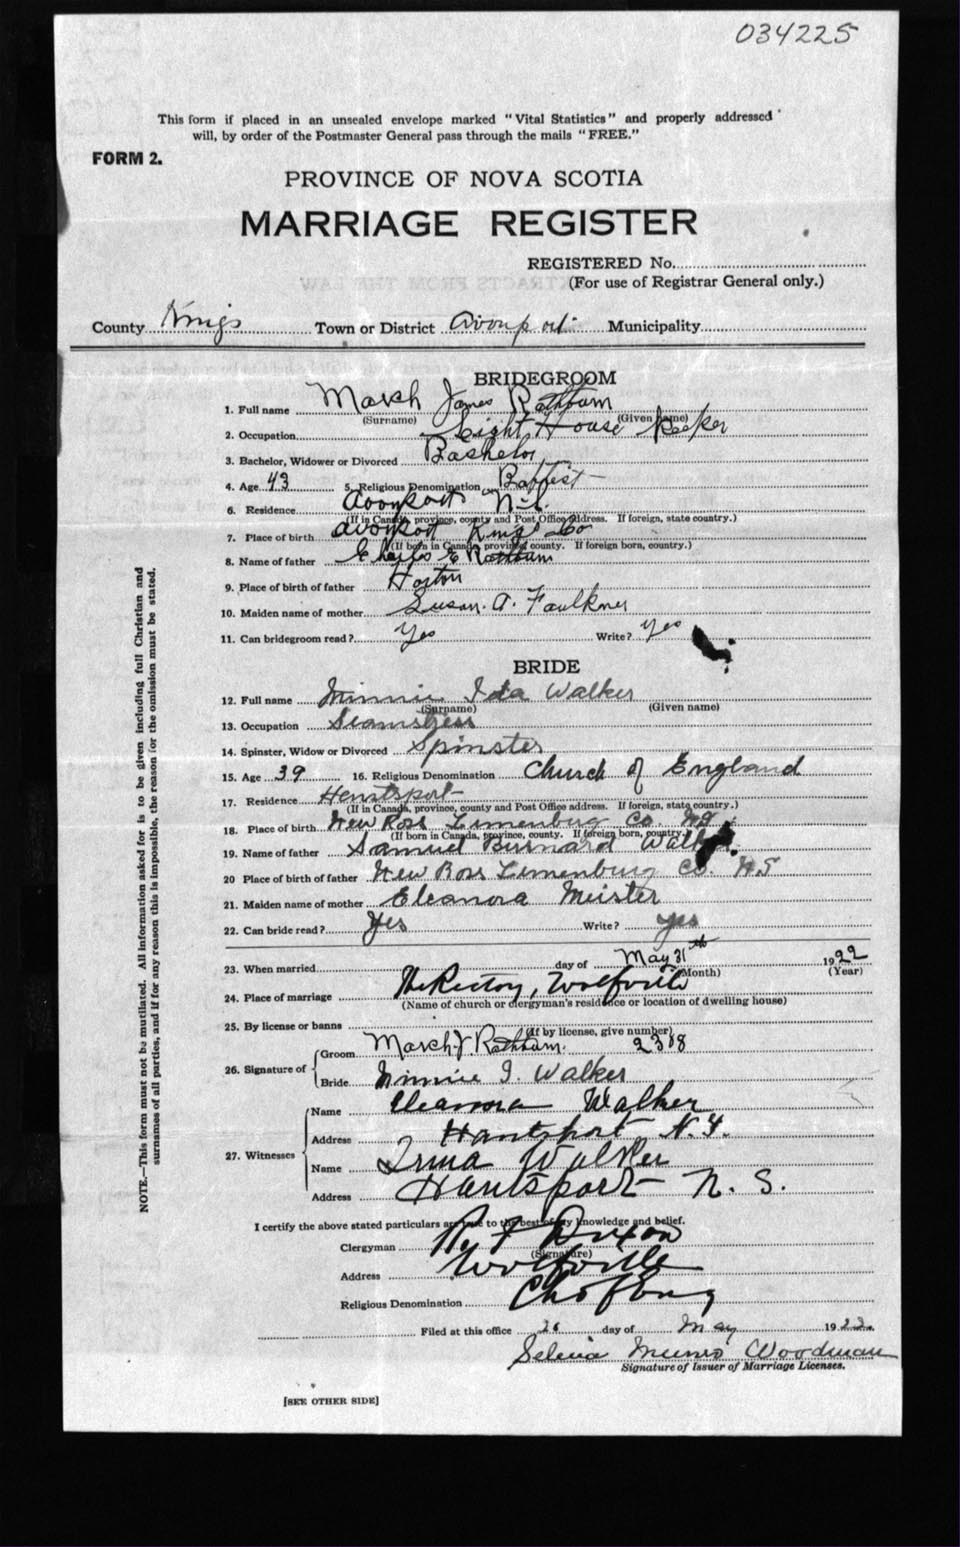 034225
This form if placed in an unsealed envelope marked "Vital Statistics" and properly addressed
will, by order of the Postmaster General pass through the mails "FREE."
FORM 2.
PROVINCE OF NOVA SCOTIA
MARRIAGE REGISTER
REGISTERED No.
(For use of Registrar General only.)
County Kings Town or District Avonport Municipality
BRIDEGROOM
1. Full name March James Rathburn
(Surname) (Given name)
2. Occupation Light House Keeper
3. Bachelor, Widower or Divorced Bachelor
4. Age 43 5. Religious Denomination Baptist
6. Residence Avonport N.S.
(If in Canada, province, county and Post Office address. If foreign, state country.)
7. Place of birth Avonport Kings Co
(If born in Canada, province, county. If foreign born, country.)
8. Name of father Charles E Rathburn
9. Place of birth of father Horton
10. Maiden name of mother Susan. A. Faulkner
11. Can bridegroom read? Yes Write? Yes
BRIDE
12. Full name Minnie Ida Walker
(Surname) (Given name)
13. Occupation Seamstress
14. Spinster, Widow or Divorced Spinster
15. Age 39 16. Religious Denomination Church of England
17. Residence Hantsport
(If in Canada, province, county and Post Office address. If foreign, state country.)
18. Place of birth New Ross Lunenburg Co. N.S
(If born in Canada, province, county. If foreign born, country.)
19. Name of father Samuel Burnard Walker
20 Place of birth of father New Ross Lunenburg Co. N.S
21. Maiden name of mother Eleanora Meister
22. Can bride read? Yes Write? yes
23. When married day of May 31th 1922
(Month) (Year)
24. Place of marriage The Rectory, Wolfville
(Name of church or clergyman's residence or location of dwelling house)
25. By license or banns
(If by license, give number)
26. Signature of Groom March J. Rathburn. 2388
Bride Minnie I. Walker
27. Witnesses Name Eleanora Walker
Address Hantsport N.S.
Name Irma Walker
Address Hantsport N. S.
I certify the above stated particulars are true to the best of my knowledge and belief.
Clergyman R. F. Dixon
(Signature)
Address Wolfville
Religious Denomination Ch of Eng
Filed at this office 26 day of May 1922.
Selena Munro Woodman
Signature of Issuer of Marriage Licenses.
[SEE OTHER SIDE]
NOTE.—This form must not be mutilated. All information asked for is to be given including full Christian and
surnames of all parties, and if for any reason this is impossible, the reason for the omission must be stated.